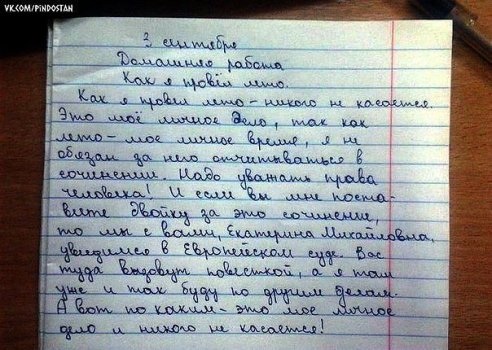 VK.COM/PINDOSTAN
3 сентября
Домашняя работа
Как я провёл лето.
Как я провёл лето – никого не касается.
Это моё личное дело, так как
лето – мое личное время, я не
обязан за него отчитываться в
сочинении. Надо уважать права
человека! И если вы мне поста-
вите двойку за это сочинение,
то мы с вами, Екатерина Михайловна,
увидимся в Европейском суде. Вас
туда вызовут повесткой, а я там
уже и так буду по другим делам.
А вот по каким – это мое личное
дело и никого не касается!